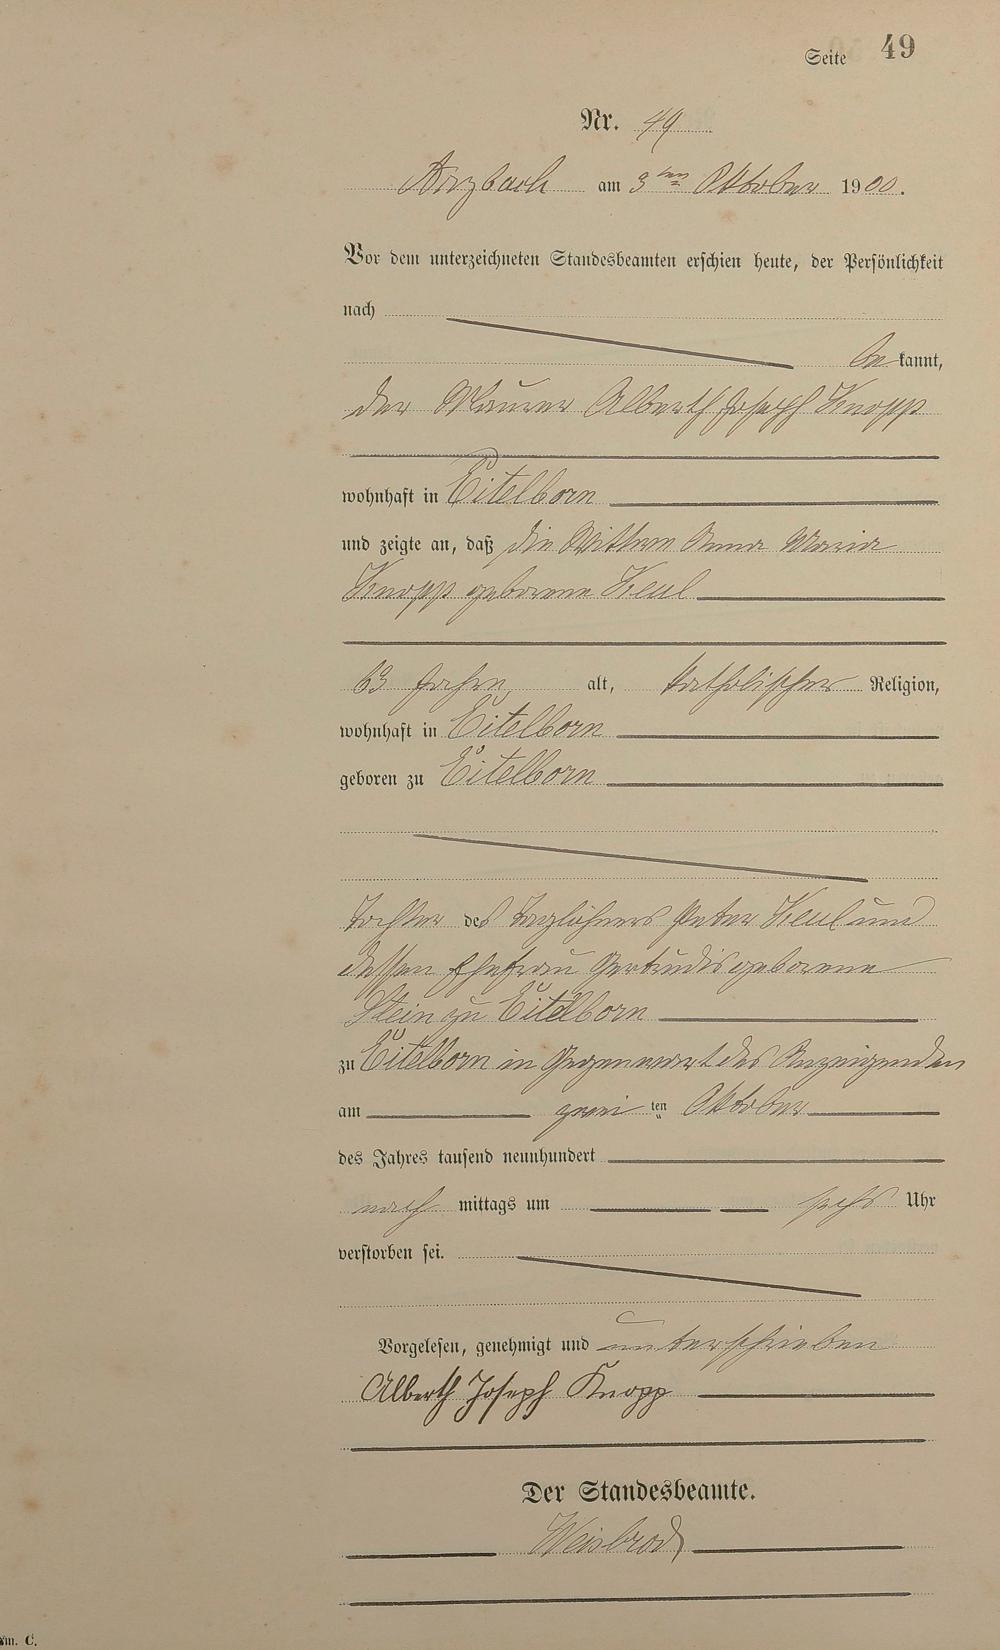 Seite 49
Nr. 49
Arzbach am 3ten Oktober 1900.
Vor dem unterzeichneten Standesbeamten erschien heute, der Persönlichkeit
nach
be kannt,
der Maurer Alberth Joseph Knopp
wohnhaft in Eitelborn
und zeigte an, daß die Wittwe Anna Maria
Knopp geborene Keul
63 Jahre, alt, katholischer Religion,
wohnhaft in Eitelborn
geboren zu Eitelborn
Tochter des Taglöhners Peter Keul und
dessen Ehefrau Gertrudis geborene
Stein zu Eitelborn
zu Eitelborn in Gegenwart des Anzeigenden
am zwei ten Oktober
des Jahres tausend neunhundert
nach mittags um sechs Uhr
verstorben sei.
Vorgelesen, genehmigt und unterschrieben
Alberth Joseph Knopp
Der Standesbeamte.
Weisbrod
m. C.